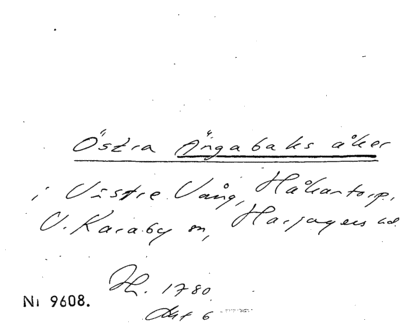 Östra Ängabaks åker
i Västre Vång, Håkantorp,
V. Karaby sn, Harjagers hd
H. 1780
Akt 6
Nr 9608.